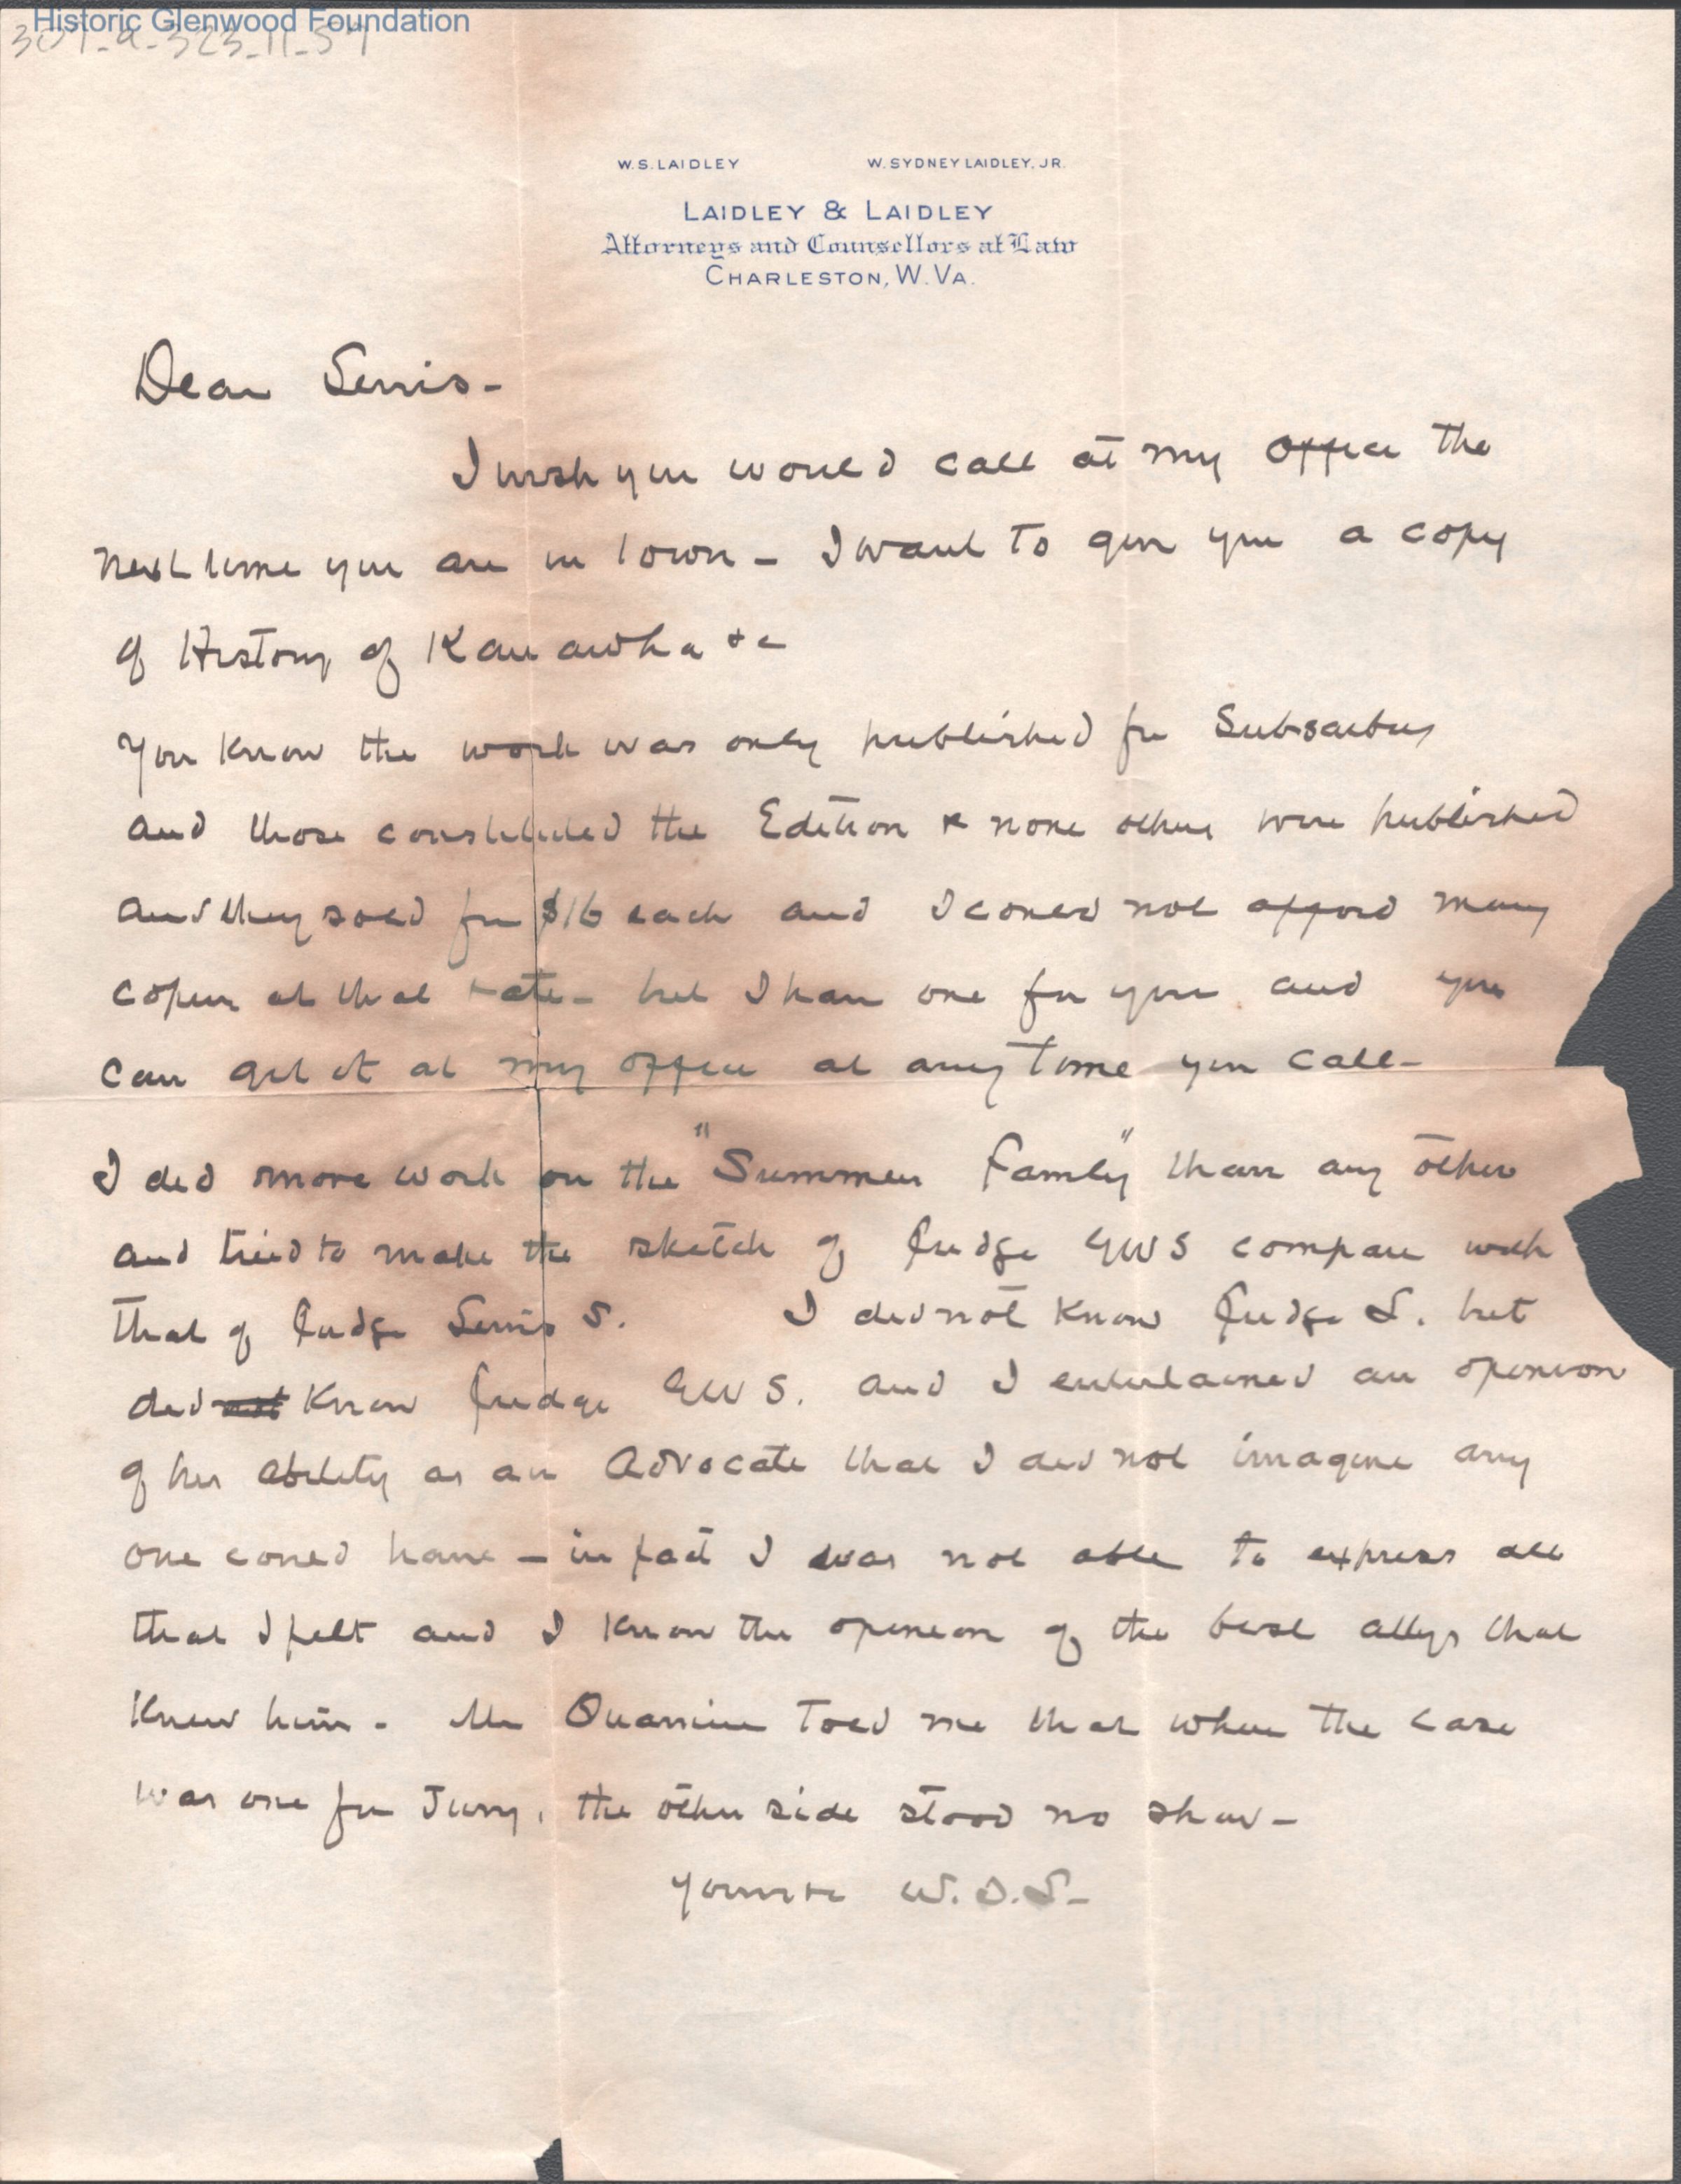 Historic Glenwood Foundation
307-9-323-11-57
W. S. LAIDLEY W. SYDNEY LAIDLEY, JR.
LAIDLEY & LAIDLEY
Attorneys and Counsellors at Law
CHARLESTON, W. VA.
Dear Lewis-
I wish you would call at my office the
next time you are in town - I want to give you a copy
of History of Kanawha &c
You know the work was only published for Subscribers
and those constituted the Edition & none others were published
and they sold for $16 each and I could not afford many
copies at that rate - but I have one for you and you
can get it at my office at any time you call-
I did more work on the "Summers Family" than any other
and tried to make the sketch of Judge GWS compare with
that of Judge Lewis S. I did not know Judge L. but
did not know Judge GWS. and I entertained an opinion
of his ability as an advocate that I did not imagine any
one could have - in fact I was not able to express all
that I felt and I know the opinion of the best attys that
knew him - Mr Quarrier told me that when the case
was one for Jury, the other side stood no show -
Yours &c W.S.L-